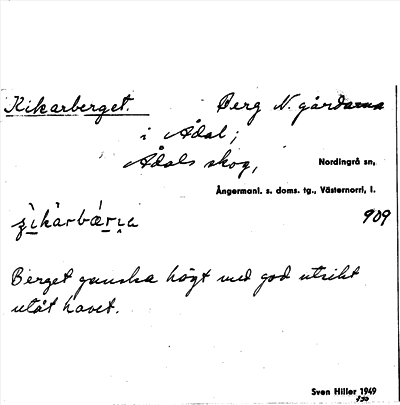 Kikarberget. Berg N. gårdarna
i Ådal;
Ådals skog,
Nordingrå sn,
Ångermanl. s. doms. tg., Västernorrl. l.
909
Berget ganska högt med god utsikt
utåt havet.
Sven Hiller 1949